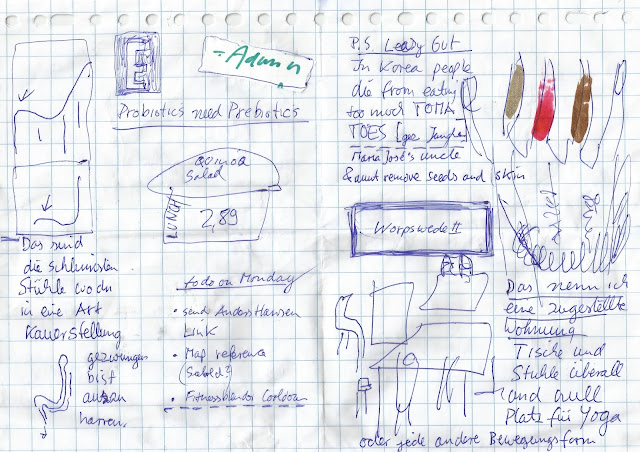 Das sind
die schlimmsten
Stühle wo du
in eine Art
Kauerstellung
gezwungen
bist
auszu
harren.
= Adam n
Probiotics need Prebiotics
QUINOA
Salad
LUNCH
2,89
todo on Monday
• send Anders Hansen
LINK
• Map reference
• Fitnessblender Cooldown
P.S. Leaky Gut
In Korea people
die from eating
too much TOMA
TOES
Maria José's uncle
& aunt remove seeds and skin
Worpswede II
Das nenn ich
eine zugestellte
Wohnung
Tische und
Stühle überall
und null
Platz für Yoga
oder jede andere Bewegungsform